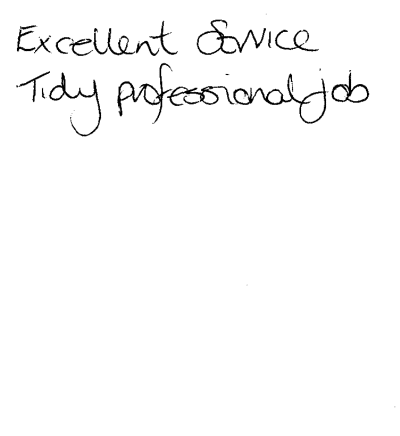 Excellent Service
Tidy professional job